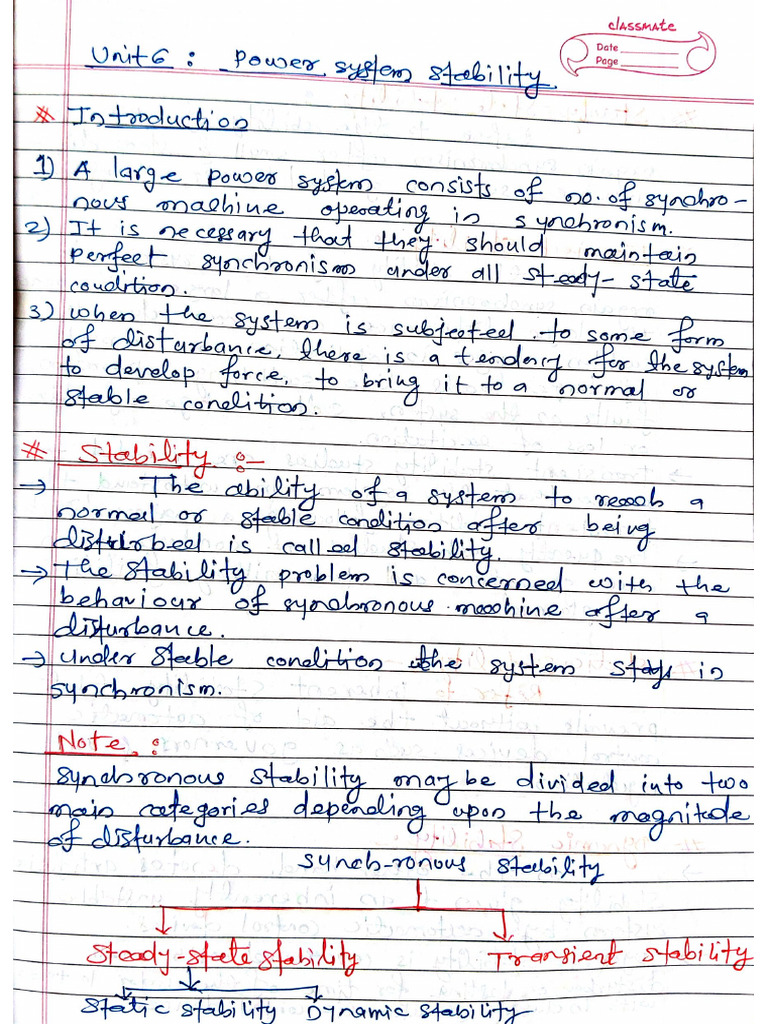 classmate
Date
Page
Unit 6 : Power system stability
* Introduction
1) A large power system consists of no. of synchro-
nous machine operating in synchronism.
2) It is necessary that they should maintain
perfect synchronism under all steady-state
condition.
3) when the system is subjected to some form
of disturbance, there is a tendency for the system
to develop force, to bring it to a normal or
stable condition.
* Stability :-
→ The ability of a system to reach a
normal or stable condition after being
disturbed is called stability.
→ The stability problem is concerned with the
behaviour of synchronous machine after a
disturbance.
→ under stable condition the system stays in
synchronism.
Note :
synchronous stability may be divided into two
main categories depending upon the magnitude
of disturbance.
synch-ronous stability
Steady-state stability Transient stability
static stability Dynamic stability